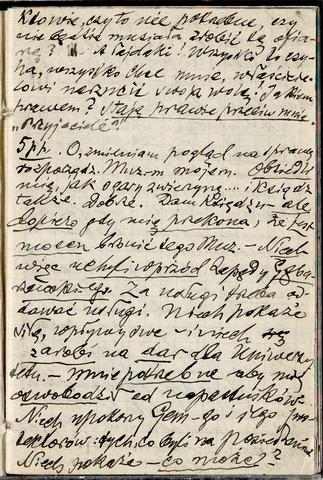 Ktowie, czy to nie potrzebne, czy
nie będzie musiała zrobić tę ofia-
rę? A Tajdaki! Wszystko to czy-
ha, wszystko chce mnie, właścicie-
lowi narzucić swoją wolę! Jakiem
prawem? Stają prawie przeciw mnie.
"Przyjaciele"!
5 pp. O, zmieniam pogląd na sprawę
rozporządz. Muz-m mojem. Obsiedli
mię, jak ogary zwierzynę... i ksiądz
także. Dobrze. Dam księdzu — ale
dopiero gdy mię przekona, że jest
mocen bronić tego Muz. — Niech
więc uchyli wprzód zapędy
Za usługi trzeba od-
dawać usługi. Niech pokaże
siłę, wpływy swe — i niech
zarobi na dar dla Uniwersy-
tetu. — Mnie potrzebne aby mię
oswobodził od napastników.
Niech upokorzy Gem-go i jego pro-
tektorów: tych, co byli na posiedzeniu.
Niech pokaże — co może!?